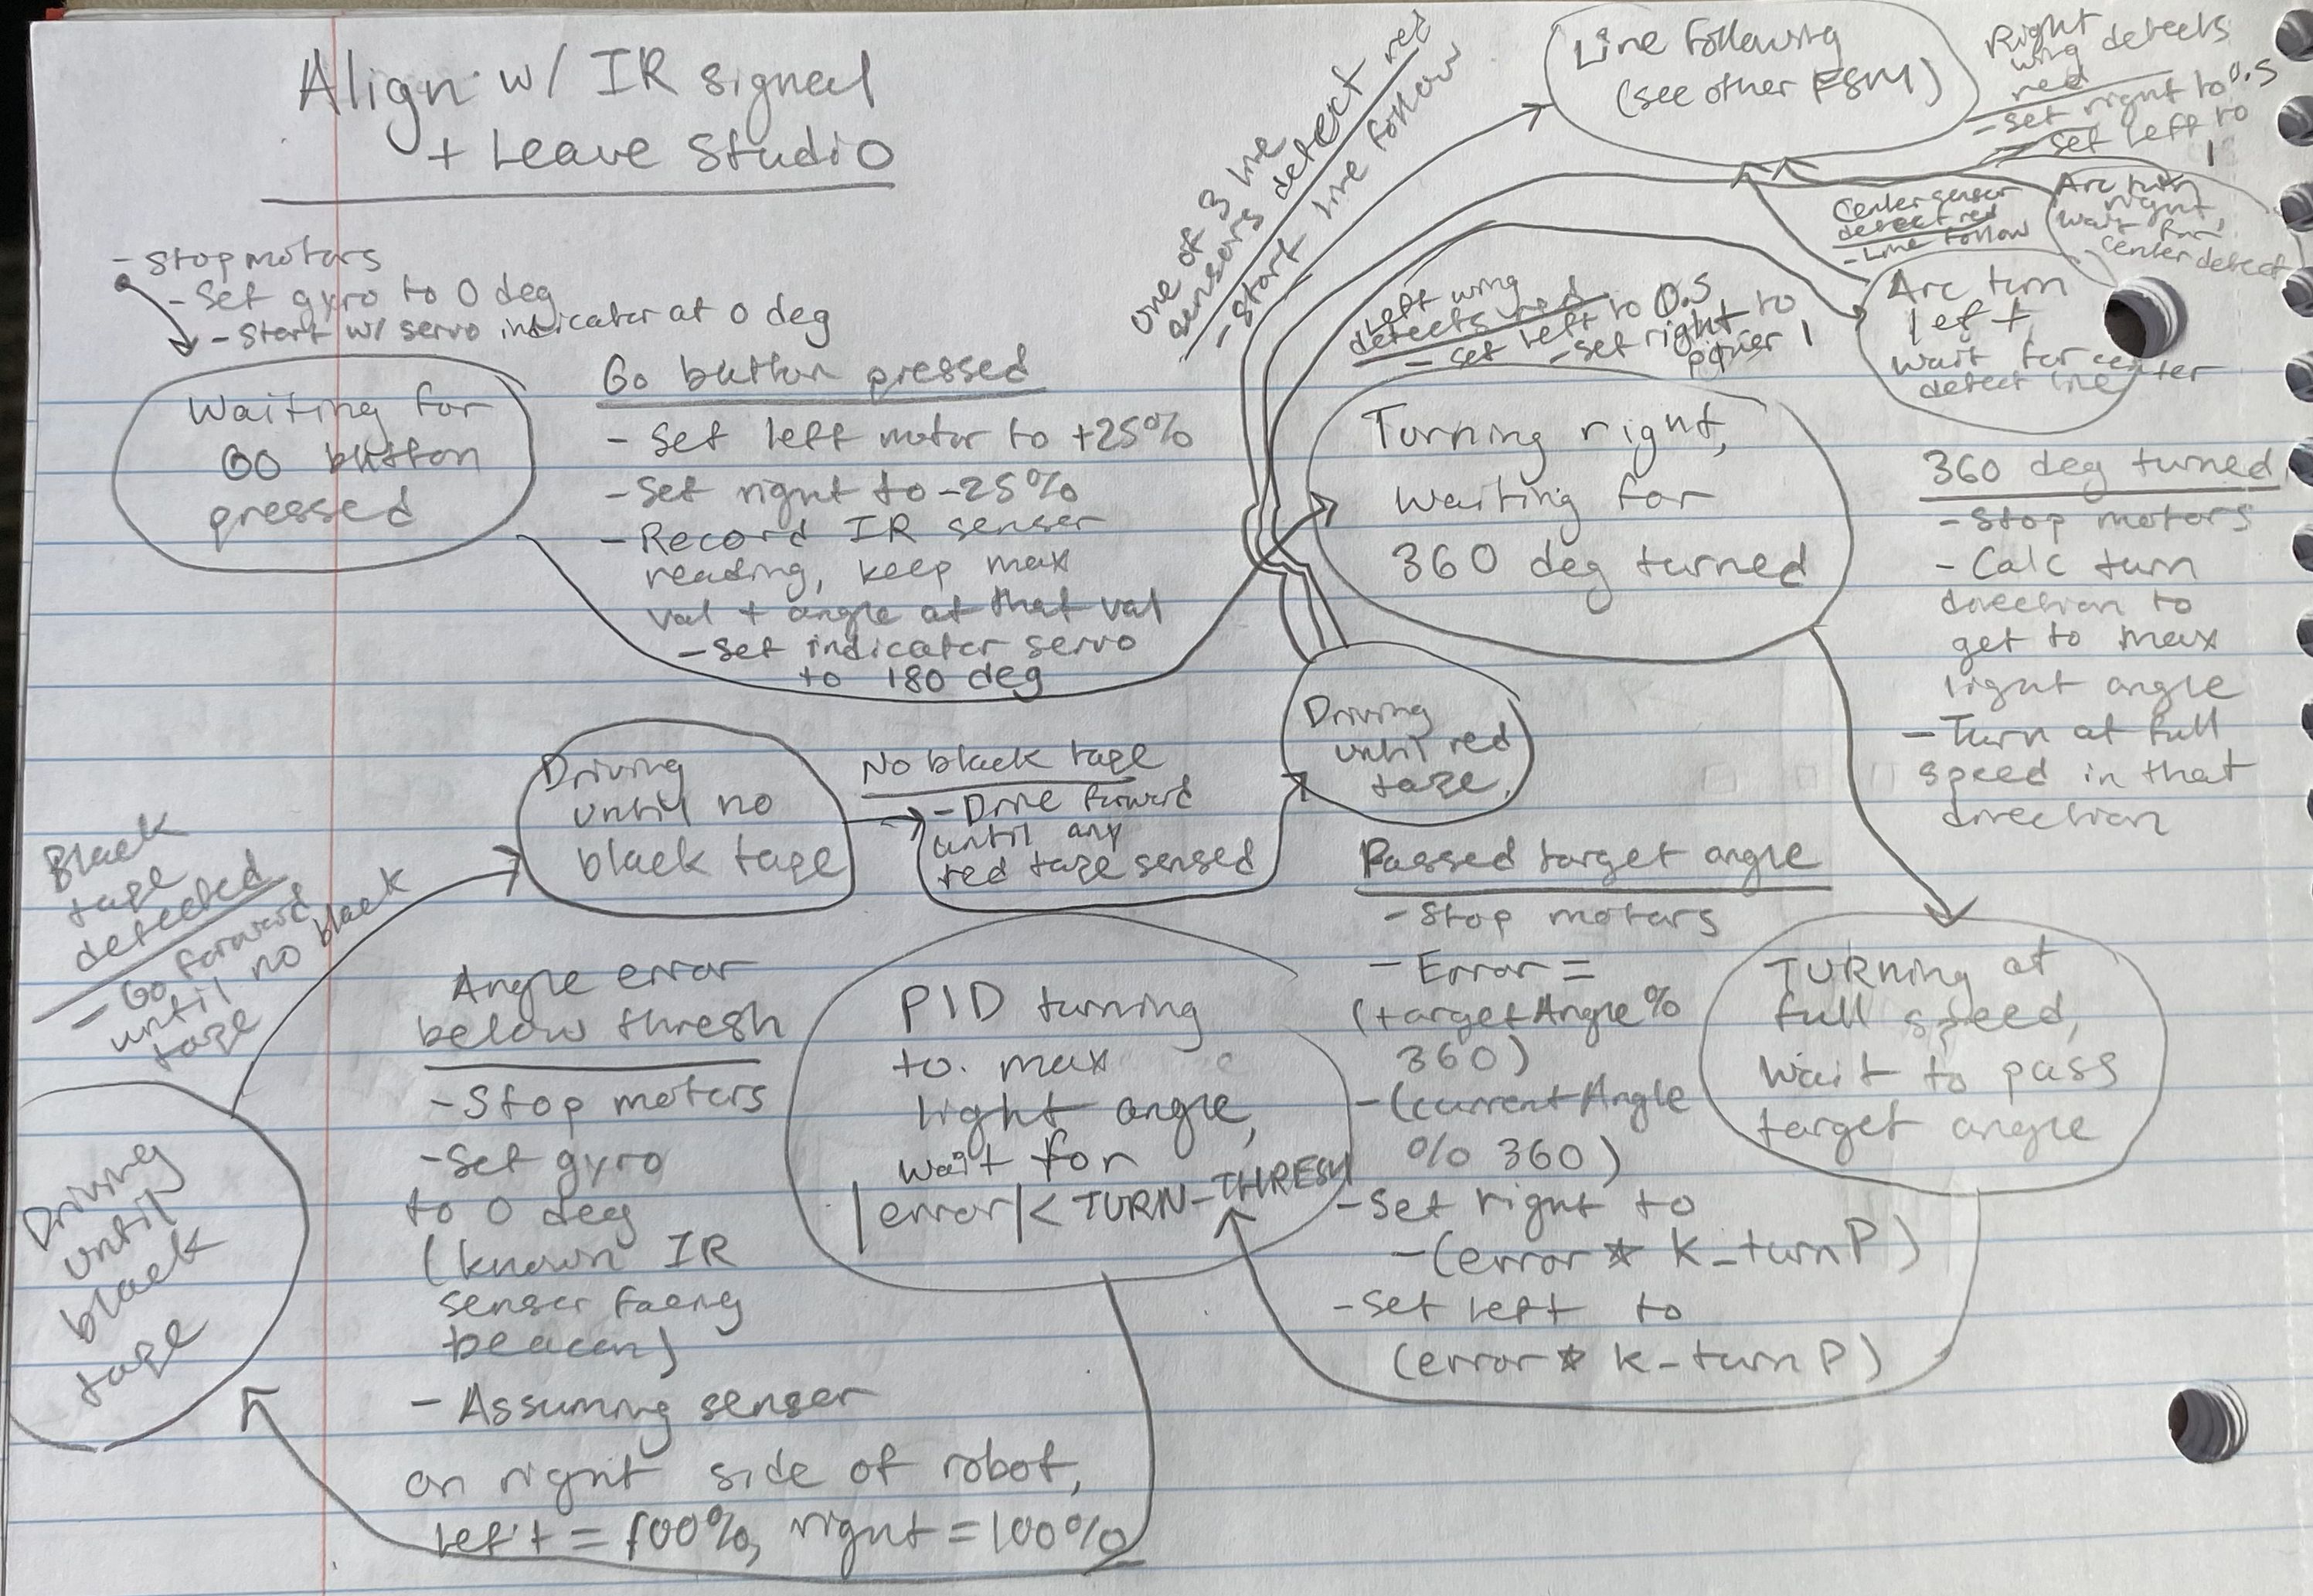 Align w/ IR signal
+ Leave Studio
- Stop motors
- Set gyro to 0 deg
- Start w/ servo indicator at 0 deg
Waiting for
GO button
pressed
Go button pressed
- Set left motor to +25%
- Set right to -25%
- Record IR sensor
reading, keep max
val + angle at that val
- Set indicator servo
to 180 deg
Turning right,
waiting for
360 deg turned
360 deg turned
- Stop motors
- Calc turn
direction to
get to max
light angle
- Turn at full
speed in that
direction
TURning at
full speed,
Wait to pass
target angle
Passed target angle
- Stop motors
- Error =
(targetAngle %
360)
- (currentAngle
% 360)
- Set right to
-(error * K_turnP)
- Set left to
(error * K_turnP)
PID turning
to max
light angle,
wait for
|error| < TURN_THRESH
Angle error
below thresh
- Stop motors
- Set gyro
to 0 deg
(known IR
sensor facing
beacon)
- Assuming sensor
on right side of robot,
left = 100%, right = 100%
Driving
until
black
tape
Black
tape
detected
- Go forward
until no black
tape
Driving
until no
black tape
No black tape
- Drive forward
until any
red tape sensed
Driving
until red
tape
One of 3 line
sensors detect red
- Start line follow
Line following
(see other FSM)
Left wing
detects red
- Set left to 0.5
- Set right to
power 1
Arc turn
left,
wait for center
detect line
Center sensor
detect red
- Line follow
Right
wing detects
red
- Set right to 0.5
- Set left to
1
Arc turn
right,
wait for
center detect